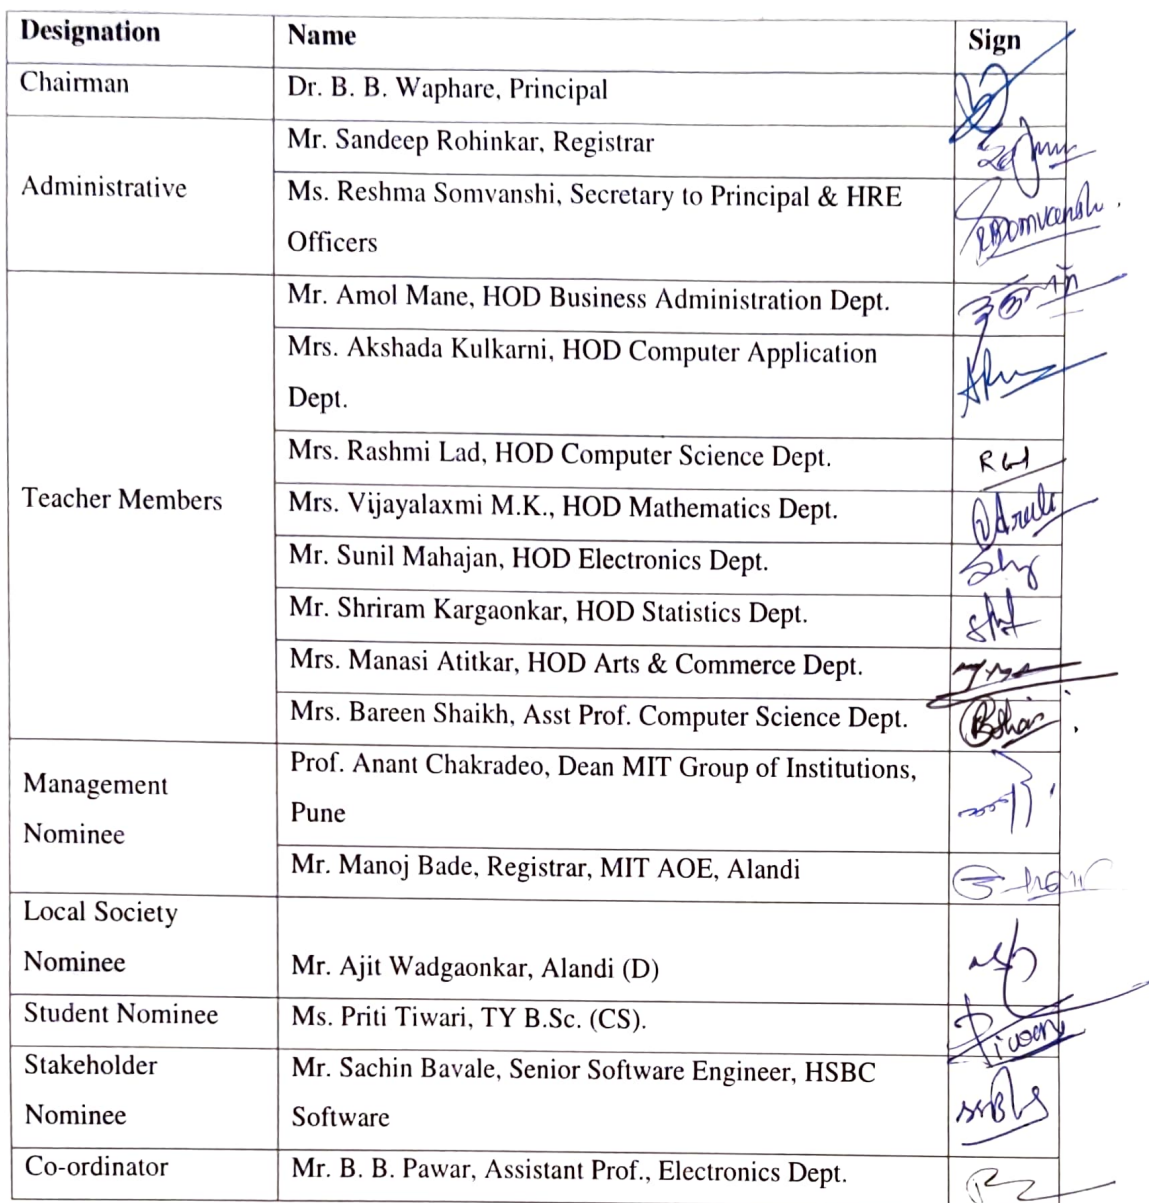 Designation Name Sign
Chairman Dr. B. B. Waphare, Principal
Administrative
Mr. Sandeep Rohinkar, Registrar
Ms. Reshma Somvanshi, Secretary to Principal & HRE
Officers
Teacher Members
Mr. Amol Mane, HOD Business Administration Dept.
Mrs. Akshada Kulkarni, HOD Computer Application
Dept.
Mrs. Rashmi Lad, HOD Computer Science Dept.
Mrs. Vijayalaxmi M.K., HOD Mathematics Dept.
Mr. Sunil Mahajan, HOD Electronics Dept.
Mr. Shriram Kargaonkar, HOD Statistics Dept.
Mrs. Manasi Atitkar, HOD Arts & Commerce Dept.
Mrs. Bareen Shaikh, Asst Prof. Computer Science Dept.
Management
Nominee
Prof. Anant Chakradeo, Dean MIT Group of Institutions,
Pune
Mr. Manoj Bade, Registrar, MIT AOE, Alandi
Local Society
Nominee Mr. Ajit Wadgaonkar, Alandi (D)
Student Nominee Ms. Priti Tiwari, TY B.Sc. (CS).
Stakeholder
Nominee
Mr. Sachin Bavale, Senior Software Engineer, HSBC
Software
Co-ordinator Mr. B. B. Pawar, Assistant Prof., Electronics Dept.